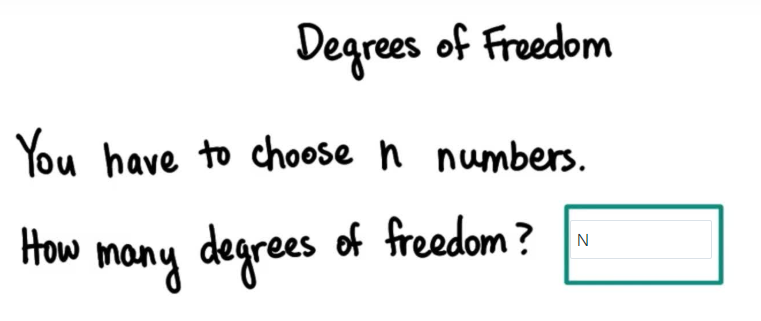 Degrees of Freedom
You have to choose n numbers.
How many degrees of freedom? N